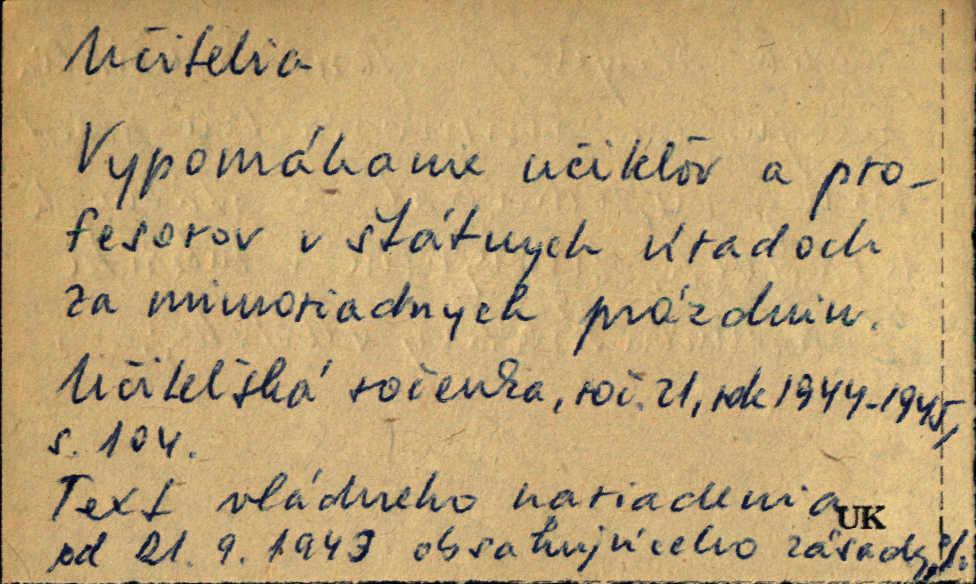 Učitelia
Vypomáhanie učiteľov a pro-
fesorov v štátnych úradoch
za mimoriadnych prázdnin.
Učiteľská ročenka, roč. 21, rok 1944-1945,
s. 104.
Text vládneho nariadenia
UK
od 21. 9. 1943 obsahujúceho zásady, ./.